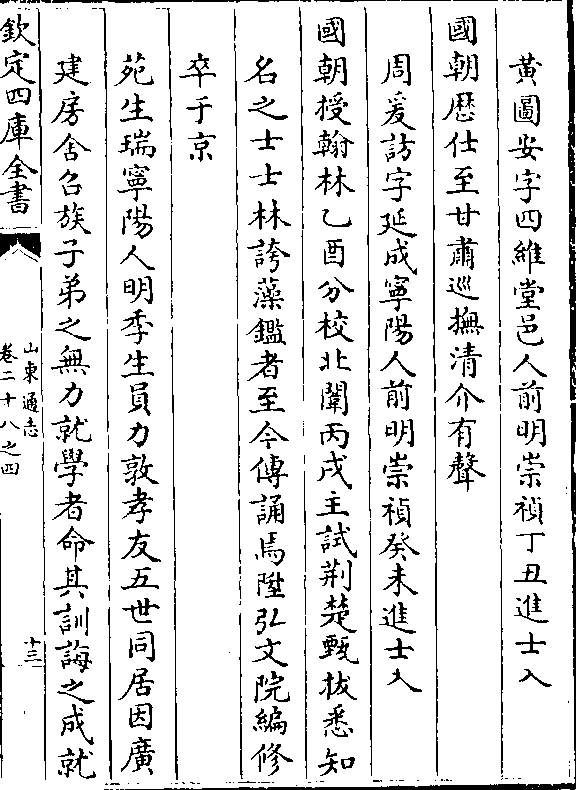 黄圖安字四維堂邑人前明崇禎丁丑進士入
國朝歴仕至甘肅巡撫清介有聲
周爰訪字延成寧陽人前明崇禎癸未進士入
國朝授翰林乙酉分校北闈丙戌主試荆楚甄拔悉知
名之士士林誇藻鑑者至今傳誦焉陞弘文院編修
卒于京
苑生瑞寧陽人明季生員力敦孝友五世同居因廣
建房舍召族子弟之無力就學者命其訓誨之成就
欽定四庫全書
山東通志
卷二十八之四
十三